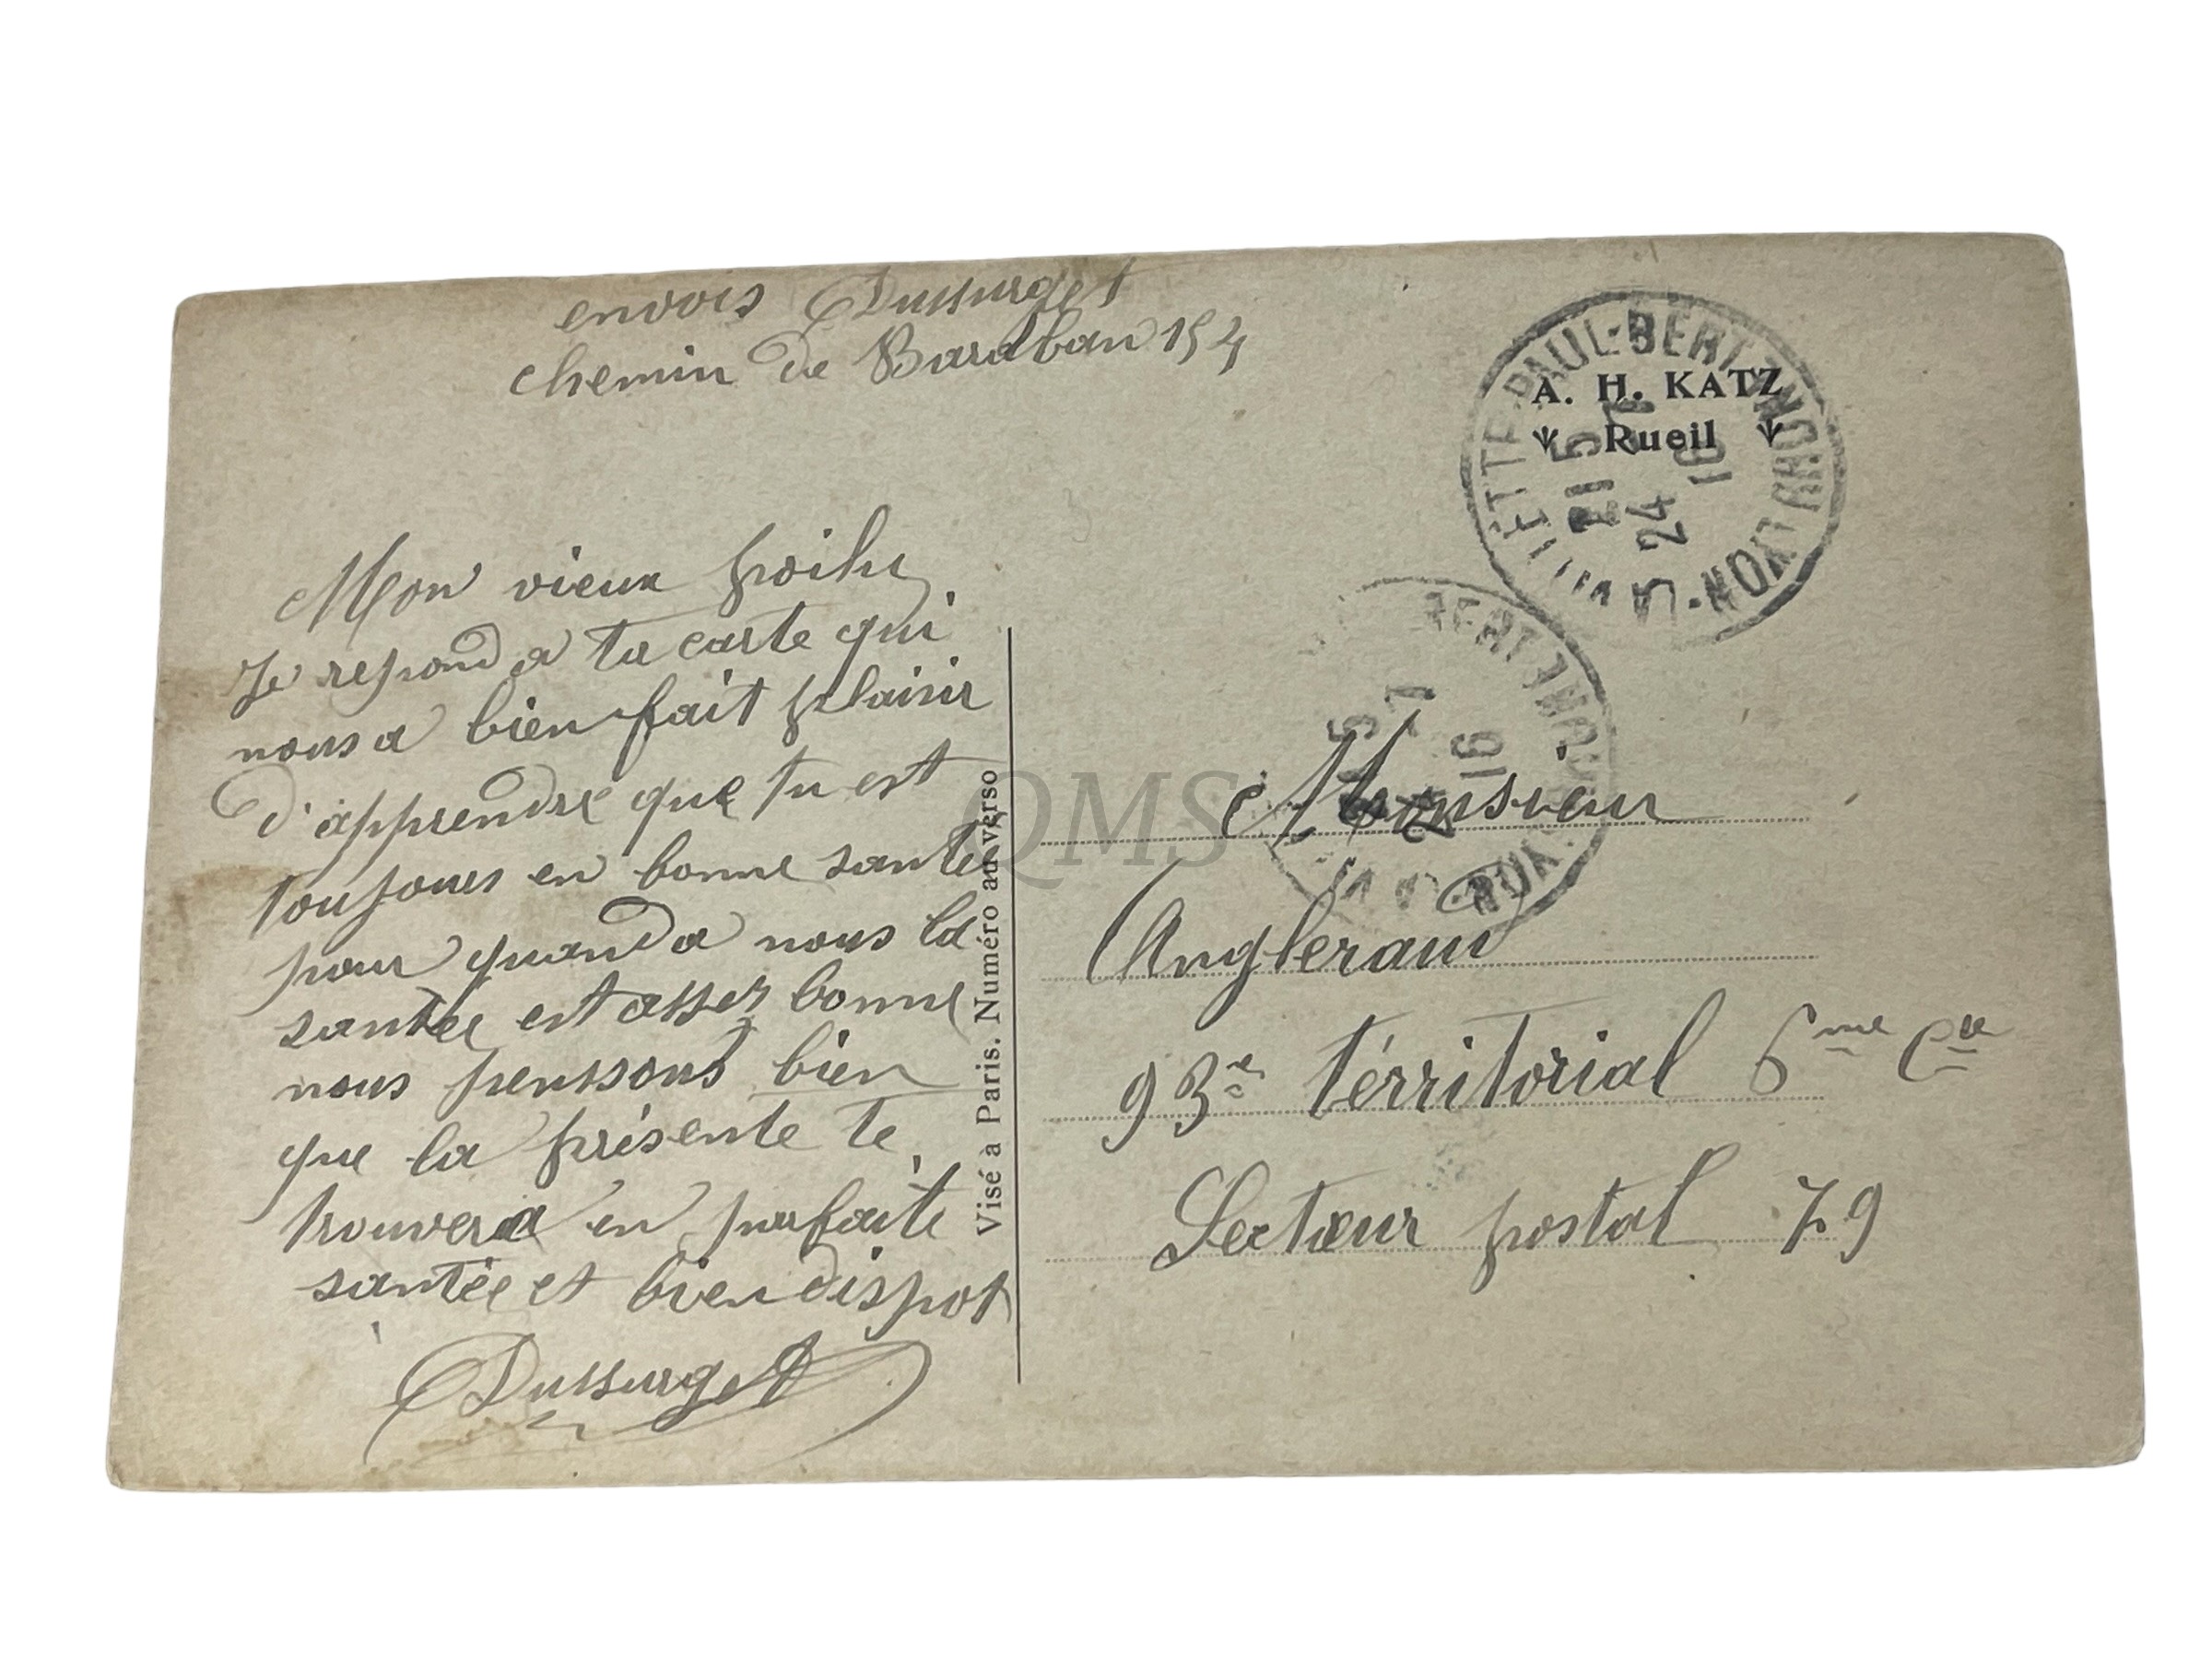 envois Dussurget
chemin de Baraban 154
Mon vieux poilu
Je repond a ta carte qui
nous a bien fait plaisir
d'apprendre que tu est
toujours en bonne santée
pour quand a nous la
santée est assez bonne
nous penssons bien
que la présente te
trouvera en parfaite
santée et bien dispot
Dussurget
Visé à Paris. Numéro au verso
A. H. KATZ
Rueil
PAUL-BERT LYON
21 5
24
7
16
BERT
LYON
5
7
16
Monsieur
Angleraud
93e térritorial 6me Cie
Secteur postal 79
QMS